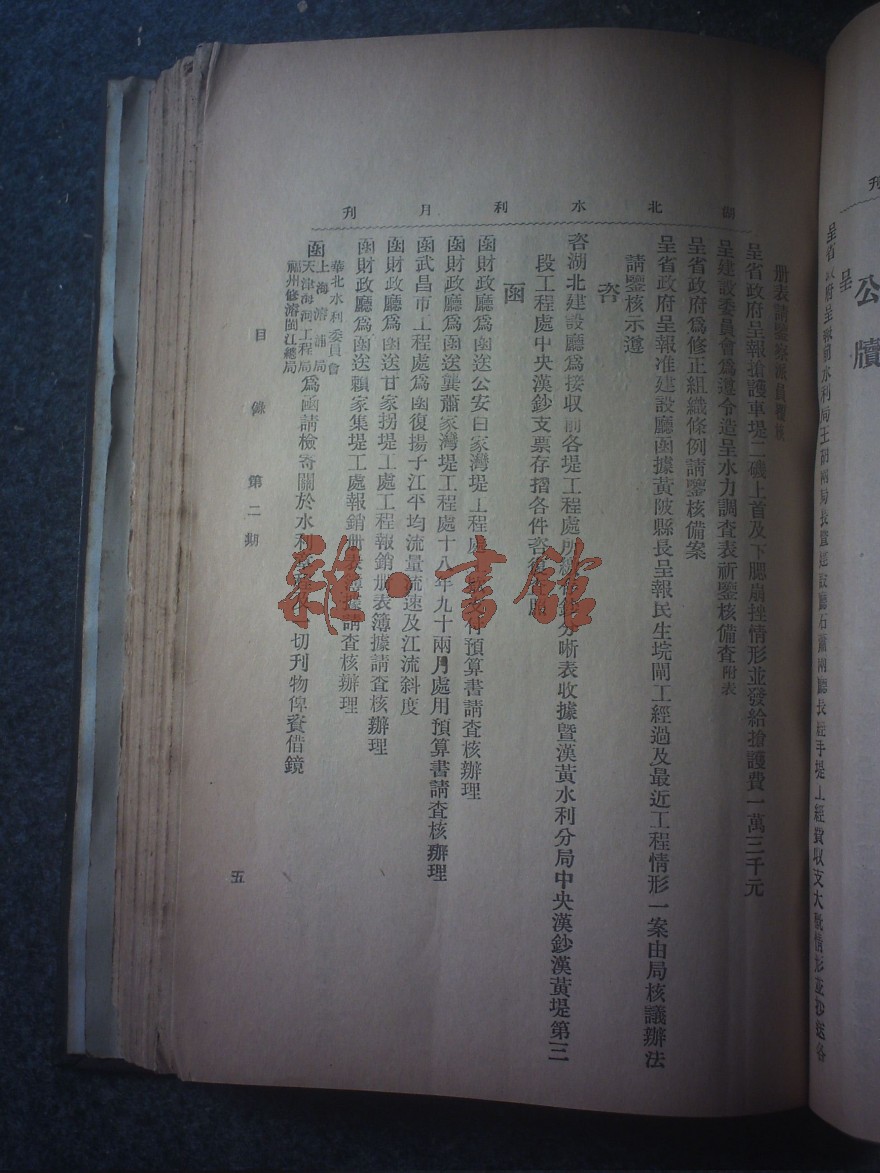 湖北水利月刊
册表請鑒察派員
呈省政府呈報搶護車堤二磯上首及下腮崩挫情形並發給搶護費一萬三千元
呈建設委員會爲遵令造呈水力調查表祈鑒核備查附表
呈省政府爲修正組織條例請鑒核備案
呈省政府呈報准建設廳函據黃陂縣長呈報民生垸閘工經過及最近工程情形一案由局核議辦法
請鑒核示遵
咨
咨湖北建設廳爲接收前各堤工程處所 分晰表收據暨漢黃水利分局中央漢鈔漢黃堤第三
段工程處中央漢鈔支票存摺各件咨復
函
函財政廳爲函送公安白家灣堤工程處 預算書請查核辦理
函財政廳爲函送龔蕭家灣堤工程處十八年九十兩月處用預算書請查核辦理
函武昌市工程處爲函復揚子江平均流量流速及江流斜度
函財政廳爲函送甘家拐堤工處工程報銷册表簿據請查核辦理
函財政廳爲函送賴家集堤工處報銷 請查核辦理
函
華北水利委員會
上海濬浦局
天津海河工程局
福州修濬閩江總局
爲函請檢寄關於水利 切刊物俾資借鏡
目錄 第二期
五
刊
公牘
呈
呈省政府呈報 水利局 兩局長暨 廳石 兩廳長經手堤工經費收支大 情形並抄送各
雜·書館